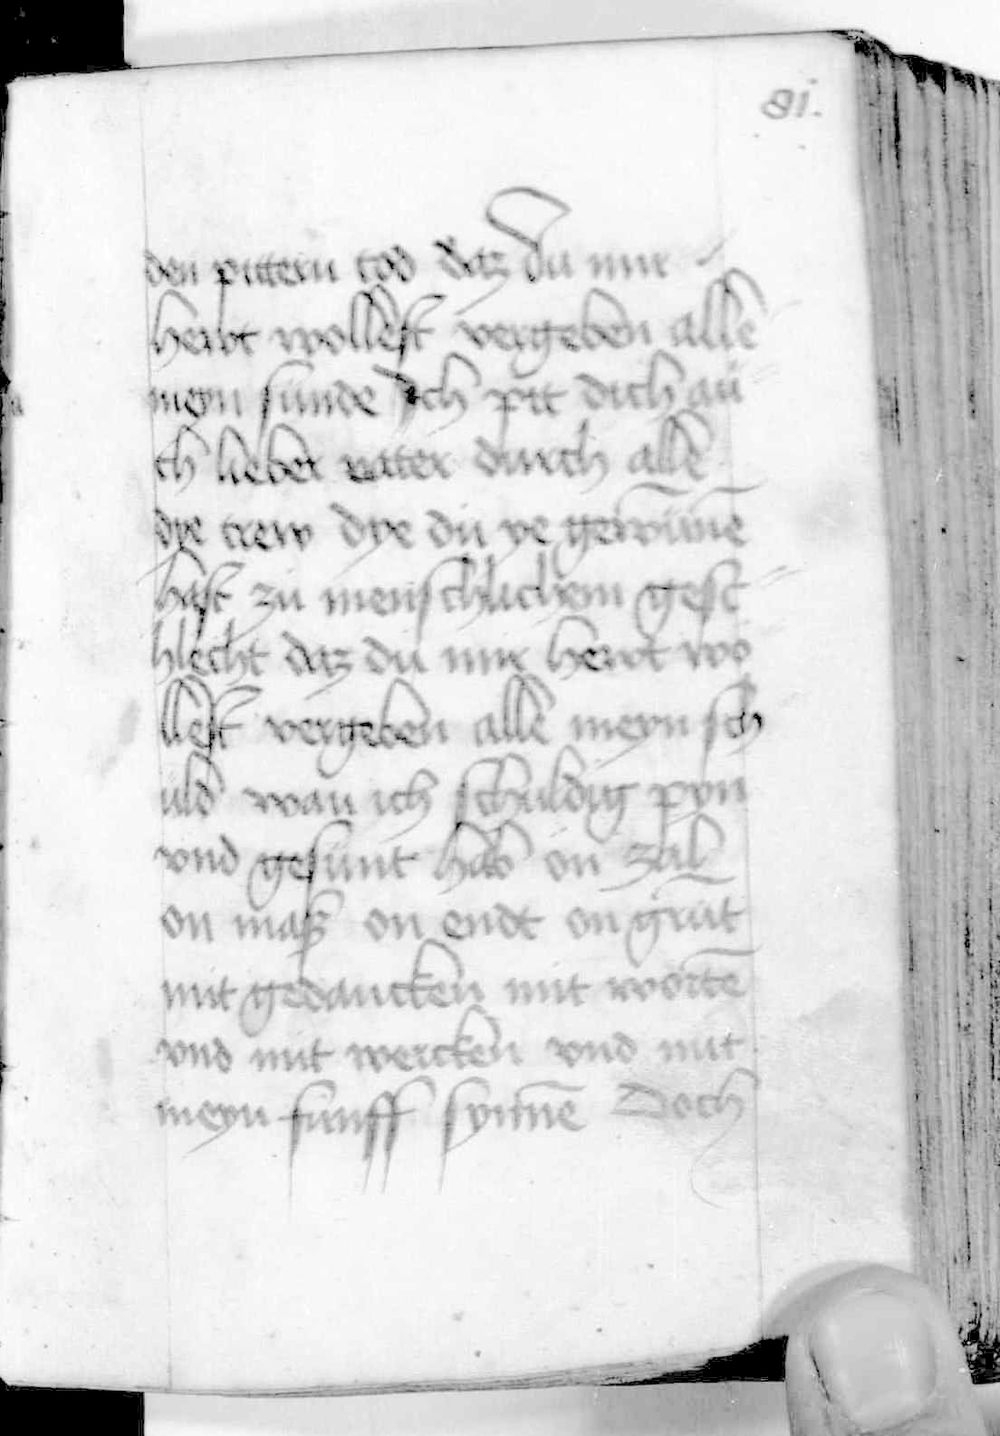 81.
den pittern tod daz du mir
hewt wollest vergeben alle
meyn sünde Ich pit dich au
ch lieber vater durch alle
dye trew dye du ye gewūnē
hast zu menschlichem gesc
hlecht daz du mir hewt wo
llest vergeben alle meyn sch
uld wan ich schuldig pyn
vnd gesunt hab on zal
on maß on endt on grūt
mit gedancken mit wortē
vnd mit wercken vnd mit
meyn funff synnē Doch